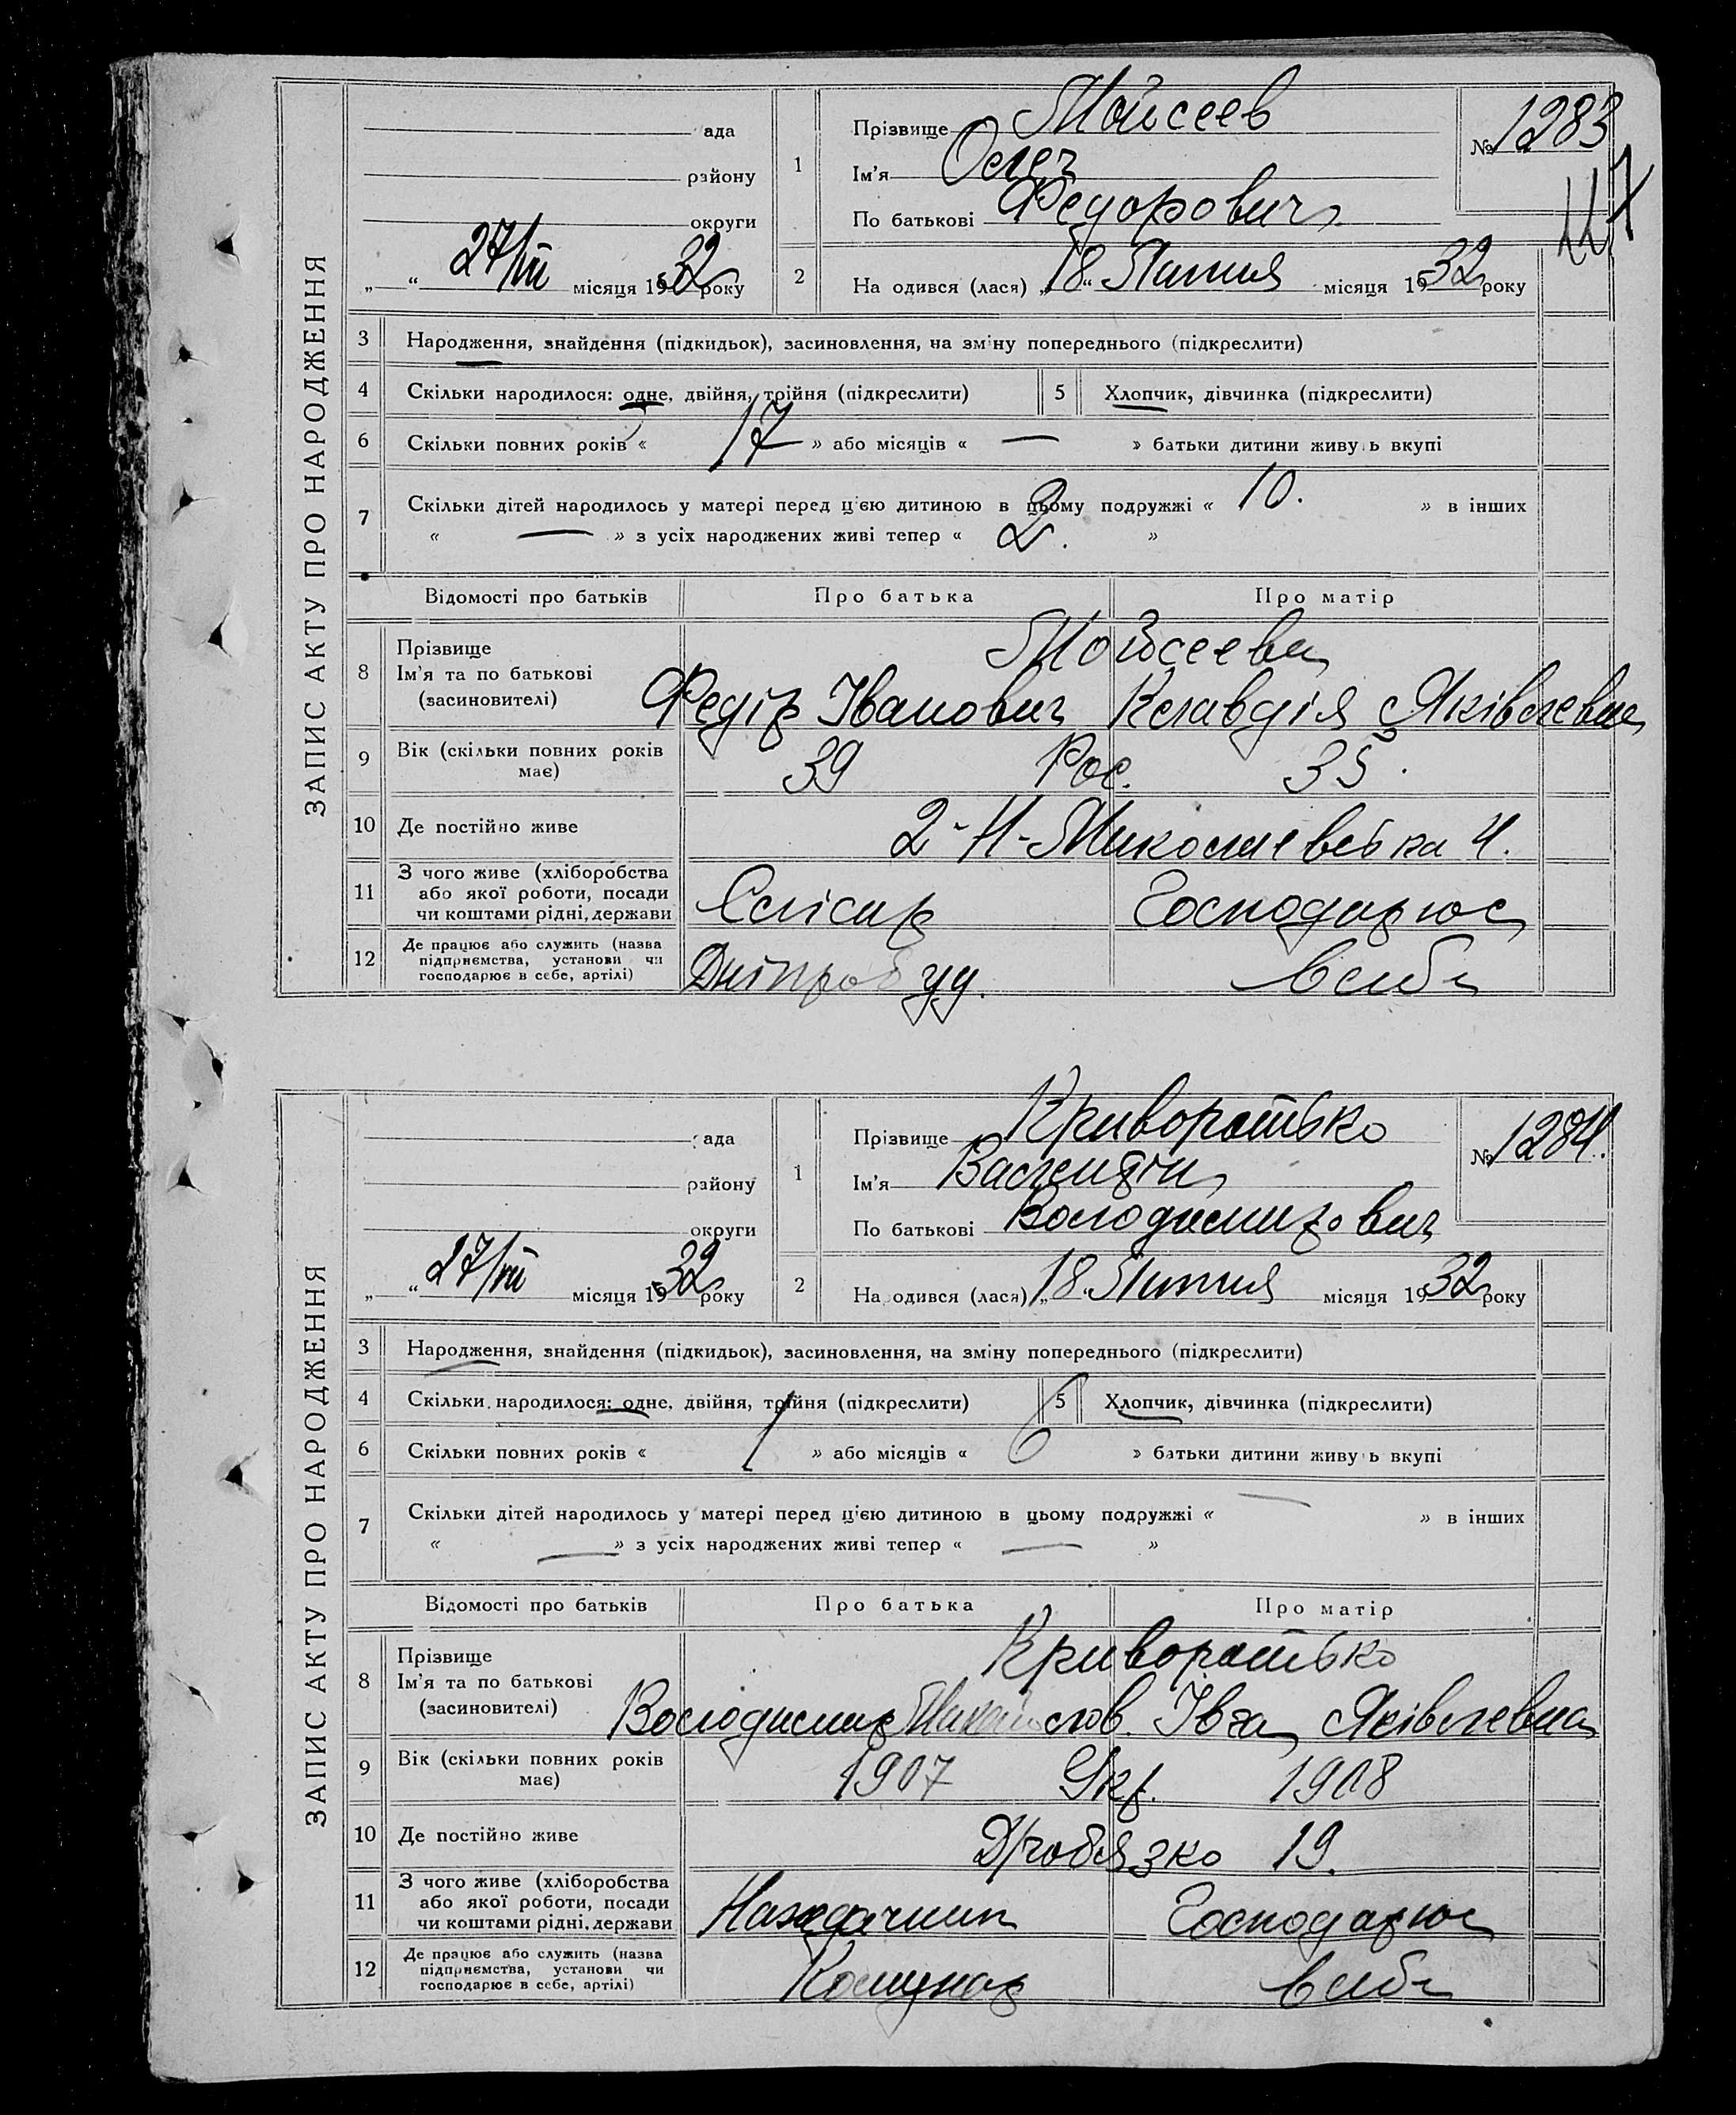 ЗАПИС АКТУ ПРО НАРОДЖЕННЯ
ада
району
округи
27/VII місяця 1932 року
1
Прізвище Мойсеев
Ім'я Олег
По батькові Федорович
№ 1283
117
2
На одився (лася) „18“ Липня місяця 1932 року
3 Народження, знайдення (підкидьок), засиновлення, на зміну попереднього (підкреслити)
4 Скільки народилося: одне, двійня, трійня (підкреслити) 5 Хлопчик, дівчинка (підкреслити)
6 Скільки повних років « 17 » або місяців « — » батьки дитини живу ь вкупі
7 Скільки дітей народилось у матері перед ц'єю дитиною в цьому подружжі « 10. » в інших
« — » з усіх народжених живі тепер « 2. »
Відомості про батьків Про батька Про матір
8 Прізвище
Ім'я та по батькові
(засиновителі)
Мойсееви
Федір Іванович Клавдія Яківлевна
9 Вік (скільки повних років має) 39 Рос. 35.
10 Де постійно живе 2-Н-Миколаевська 4.
11 З чого живе (хліборобства або якої роботи, посади чи коштами рідні, держави Слісар Господарює
12 Де працює або служить (назва підприємства, установи чи господарює в себе, артілі) Дніпробуд. в себе
ЗАПИС АКТУ ПРО НАРОДЖЕННЯ
ада
району
округи
27/VII місяця 1932 року
1
Прізвище Криворотько
Ім'я Валентин
По батькові Володимирович
№ 1284.
2
На одився (лася) „18. Липня місяця 1932 року
3 Народження, знайдення (підкидьок), засиновлення, на зміну попереднього (підкреслити)
4 Скільки народилося: одне, двійня, трійня (підкреслити) 5 Хлопчик, дівчинка (підкреслити)
6 Скільки повних років « 1 » або місяців « 6 » батьки дитини живу ь вкупі
7 Скільки дітей народилось у матері перед ц'єю дитиною в цьому подружжі « — » в інших
« — » з усіх народжених живі тепер « — »
Відомості про батьків Про батька Про матір
8 Прізвище
Ім'я та по батькові
(засиновителі)
Криворотько
Володимир Михайлов. Івга Яківлевна
9 Вік (скільки повних років має) 1907 Укр. 1908
10 Де постійно живе Дробязко 19.
11 З чого живе (хліборобства або якої роботи, посади чи коштами рідні, держави Господарює
12 Де працює або служить (назва підприємства, установи чи господарює в себе, артілі) Комунар в себе